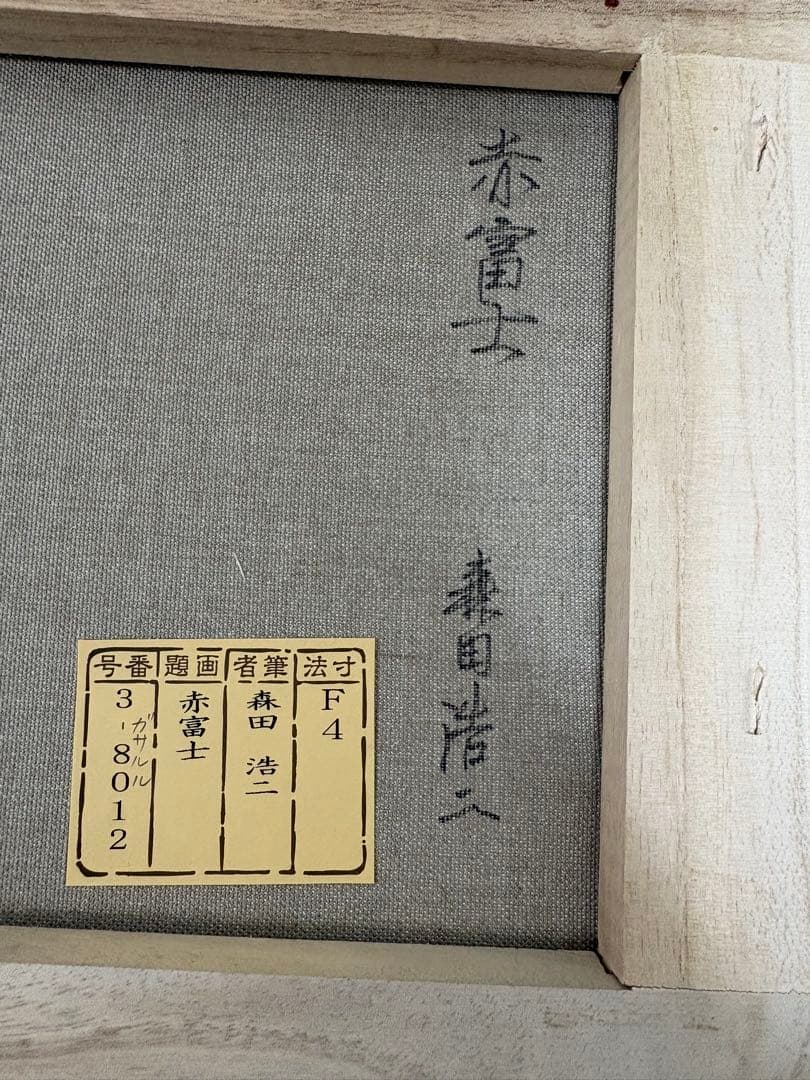 赤富士
森田浩二
寸法
F4
筆者
森田 浩二
画題
赤富士
番号
3-8012
ガサルル